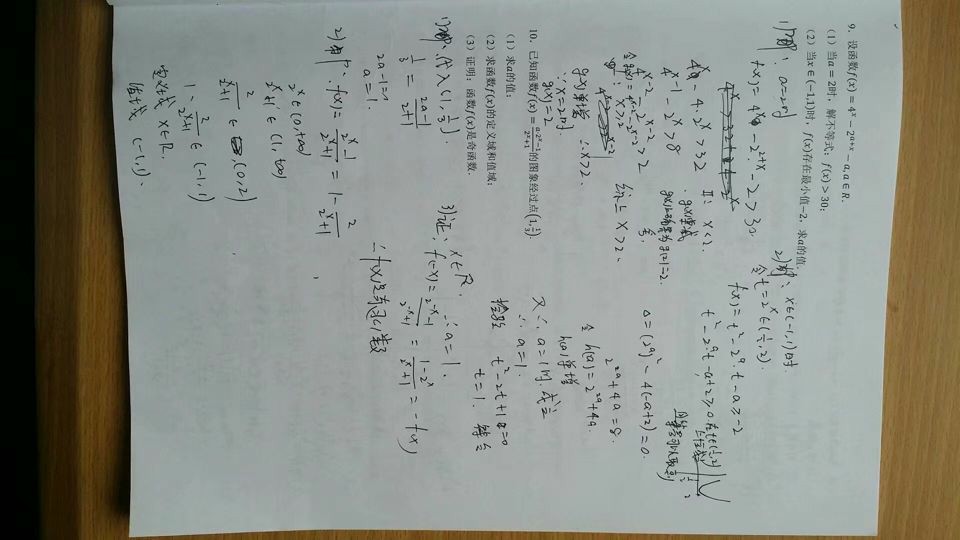 9. 设函数f(x) = 4ˣ − 2ᵃ⁺ˣ − a, a ∈ R.
(1) 当a = 2时，解不等式：f(x) > 30；
(2) 当x ∈ (−1,1)时，f(x)存在最小值−2，求a的值.
1)解：a=2时
f(x)= 4ˣ - 2²⁺ˣ - 2 > 30
4ˣ - 4·2ˣ > 32
4ˣ⁻¹ - 2ˣ > 8
4ˣ⁻² - 2ˣ⁻² > 2
x > 2
g(x)单增
g(x)=2
∵ x=2时
∴ x>2.
II: x<2.
舍.
综上 x>2.
2)解：x∈(-1,1)时.
令t=2ˣ∈(½,2).
f(x)= t² - 2ᵃ·t - a ≥ -2
t² - 2ᵃt - a + 2 ≥ 0 在t∈(½,2)
Δ = (2ᵃ)² - 4(-a+2) = 0.
2²ᵃ + 4a = 8.
令 h(a) = 2²ᵃ + 4a.
h(a)单增
又∵ a=1时. 成立
∴ a=1.
检验 t² - 2t + 1 = 0
t=1. 符合
∴ a=1.
10. 已知函数f(x) = (a·2ˣ−1)/(2ˣ+1)的图象经过点(1, 1/3).
(1) 求a的值；
(2) 求函数f(x)的定义域和值域；
(3) 证明：函数f(x)是奇函数.
1)解：代入(1, 1/3)
1/3 = (2a-1)/(2+1)
2a-1=1
a=1.
2)解：f(x)= (2ˣ-1)/(2ˣ+1) = 1 - 2/(2ˣ+1)
2ˣ∈(0,+∞)
2ˣ+1 ∈ (1,+∞)
2/(2ˣ+1) ∈ (0,2)
1 - 2/(2ˣ+1) ∈ (-1,1)
定义域 x∈R.
值域 (-1,1).
3)证：x∈R.
f(-x)= (2⁻ˣ-1)/(2⁻ˣ+1) = (1-2ˣ)/(2ˣ+1) = -f(x)
∴ f(x)是奇函数